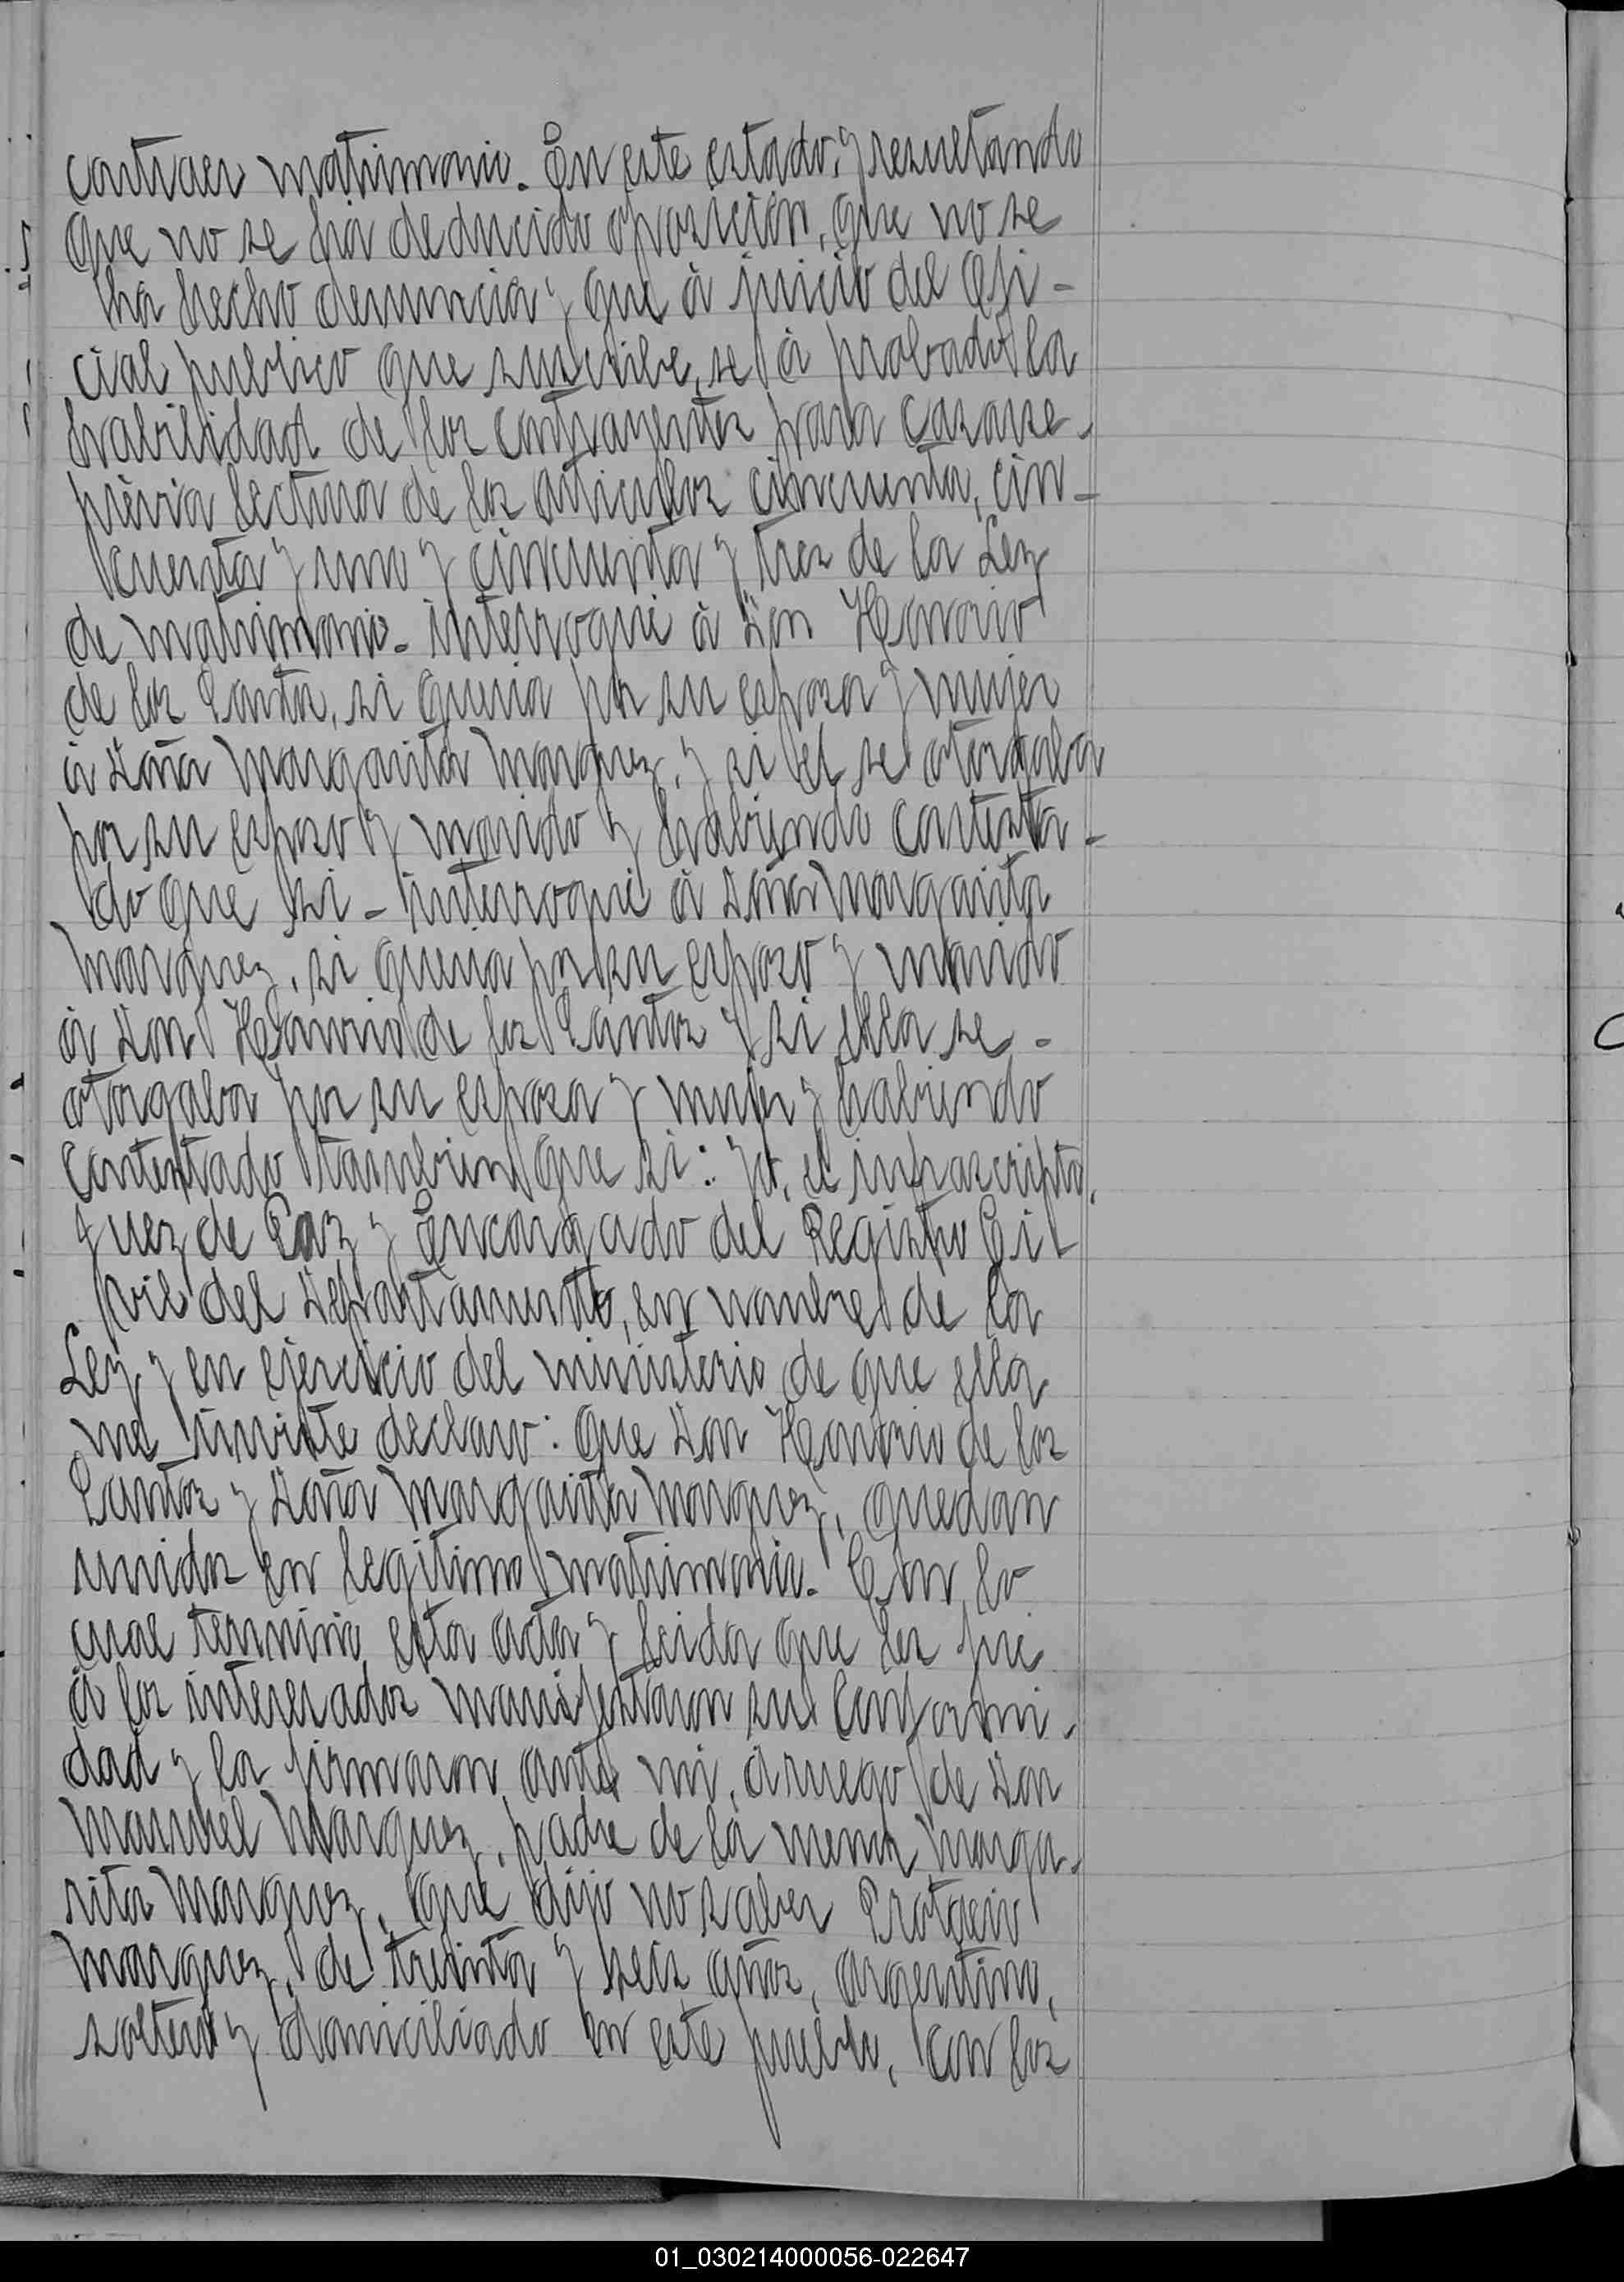 contraer matrimonio. En este estado, y resultando
que no se ha deducido oposición, que no se
ha hecho denuncia y que à juicio del Ofi-
cial publico que suscribe, se à probado la
habilidad de los contrayentes para casarse-
prévia lectura de los articulos cincuenta, cin-
cuenta y uno y cincuenta y tres de la Ley
de matrimonio- interrogué à Don Honorio
de los Santos, si queria por su esposa y mujer
à Doña Margarita Marquez, y si el se otorgaba
por su esposo y marido y habiendo contesta-
do que si - interrogué à Doña Margarita
Marquez, si queria por su esposo y marido
à Don Honorio de los Santos y si ella se -
otorgaba por su esposa y mujer y habiendo
contestado tambien que si: yo, el infrascripto,
Juez de Paz y Encargado del Registro Ci-
vil del Departamento, en nombre de la
Ley y en ejercicio del ministerio de que ella
me inviste declaro: que Don Honorio de los
Santos y Doña Margarita Marquez, quedan
unidos en legitimo matrimonio. Con lo
cual terminó esta acta y leida que les fué
à los interesados manifestaron su conformi-
dad y la firmaron ante mi, à ruego de Don
Manuel Marquez, padre de la menor Marga-
rita Marquez, que dijo no saber Protacio
Marquez, de treinta y seis años, argentino,
soltero y domiciliado en este pueblo, con los
01_030214000056-022647